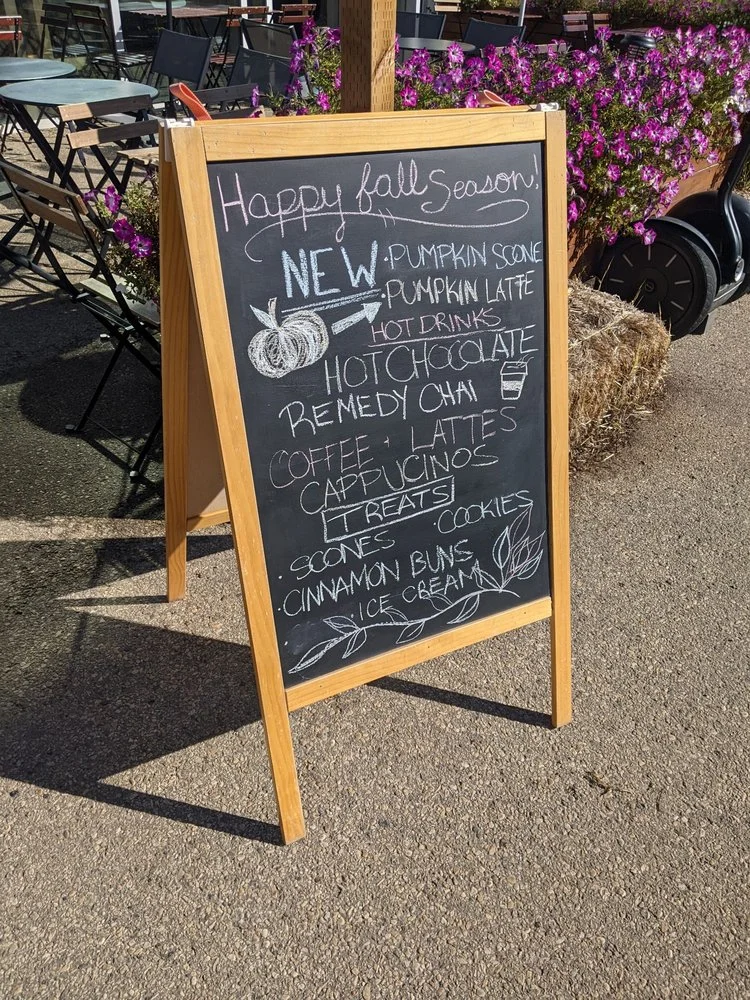 Happy fall Season!
NEW • PUMPKIN SCONE
• PUMPKIN LATTE
HOT DRINKS
HOT CHOCOLATE
REMEDY CHAI
COFFEE • LATTES
CAPPUCINOS
TREATS
• SCONES COOKIES
• CINNAMON BUNS
• ICE CREAM